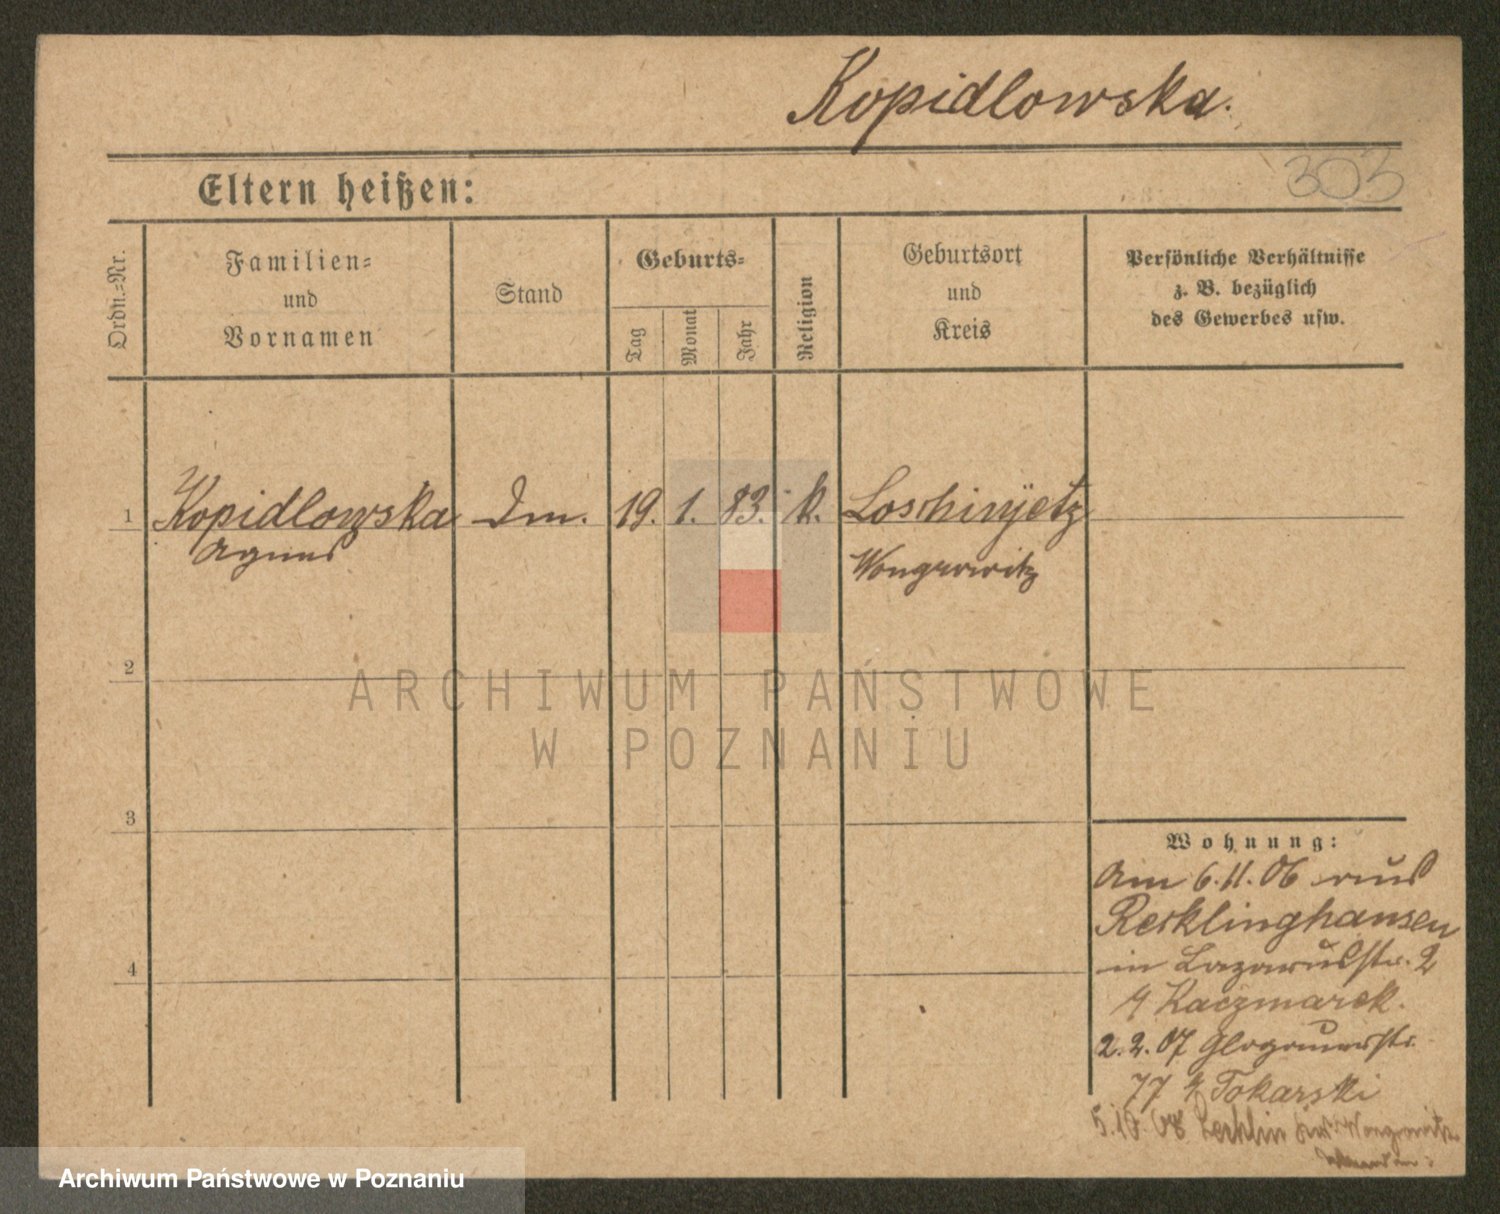 Kopidlowska.
303
Eltern heißen:
Ordn.-Nr.
Familien-
und
Vornamen
Stand
Geburts-
Tag
Monat
Jahr
Religion
Geburtsort
und
Kreis
Persönliche Verhältnisse
z. B. bezüglich
des Gewerbes usw.
1 Kopidlowska 19. 1. 83. k.
Agnes
Wongrowitz
2
ARCHIWUM PAŃSTWOWE
W POZNANIU
3
Wohnung:
Am 6.11.06 aus
Recklinghausen
in Lazarusstr. 2
4
Kaczmarek.
2.2.07 Glogauerstr.
77 Tokarski
5.10.08 Wongrowitz
Archiwum Państwowe w Poznaniu